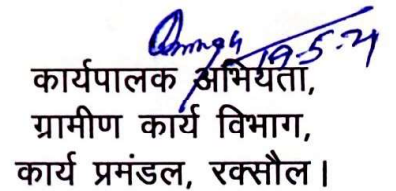 19-5-21
कार्यपालक अभियंता,
ग्रामीण कार्य विभाग,
कार्य प्रमंडल, रक्सौल।